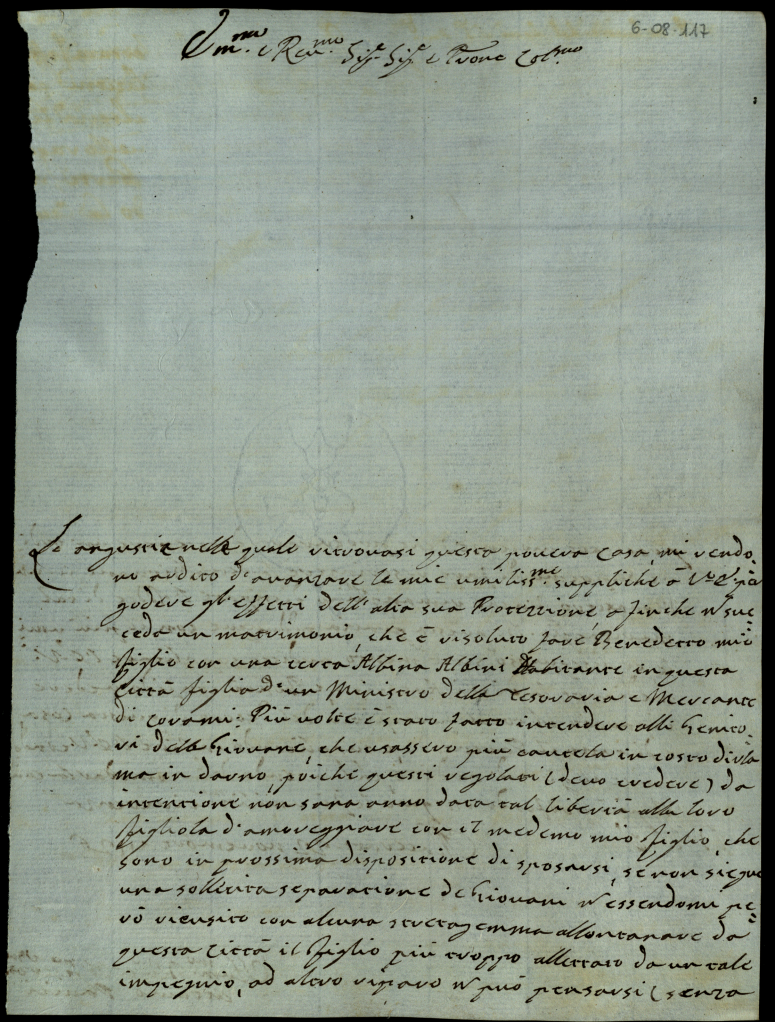 6-08-117
Jmmo. e Revmo. Sigr. Sigr. e Prone Colmo
Le angustie nelle quale ritrovasi questa povera casa, mi rendo
no ardito d'avanzare le mie umilissme. suppliche à V. E.
godere gl'effetti dell'alta sua Protezzione, a finche n suc
ceda un matrimonio, che è risoluto fare Benedetto mio
figlio con una certa Albina Albini Habitante in questa
Città figlia d'un Ministro della Tesoraria e Mercante
di corami: Più volte è stato fatto intendere alli Genito
ri della Giovane, che usassero più cautela in costodirla
ma in darno, poiche questi regolati (devo credere) da
intentione non sana anno data tal libertà alla loro
figliola d'amoreggiare con il medemo mio figlio, che
sono in prossima dispositione di sposarsi, se non siegue
una sollicita separatione de Giovani n essendomi pe
rò riuscito con alcuna stratagemma allontanare da
questa Città il figlio più troppo allettato da un tale
impegnio, ad altro riparo n può pensarsi (senza